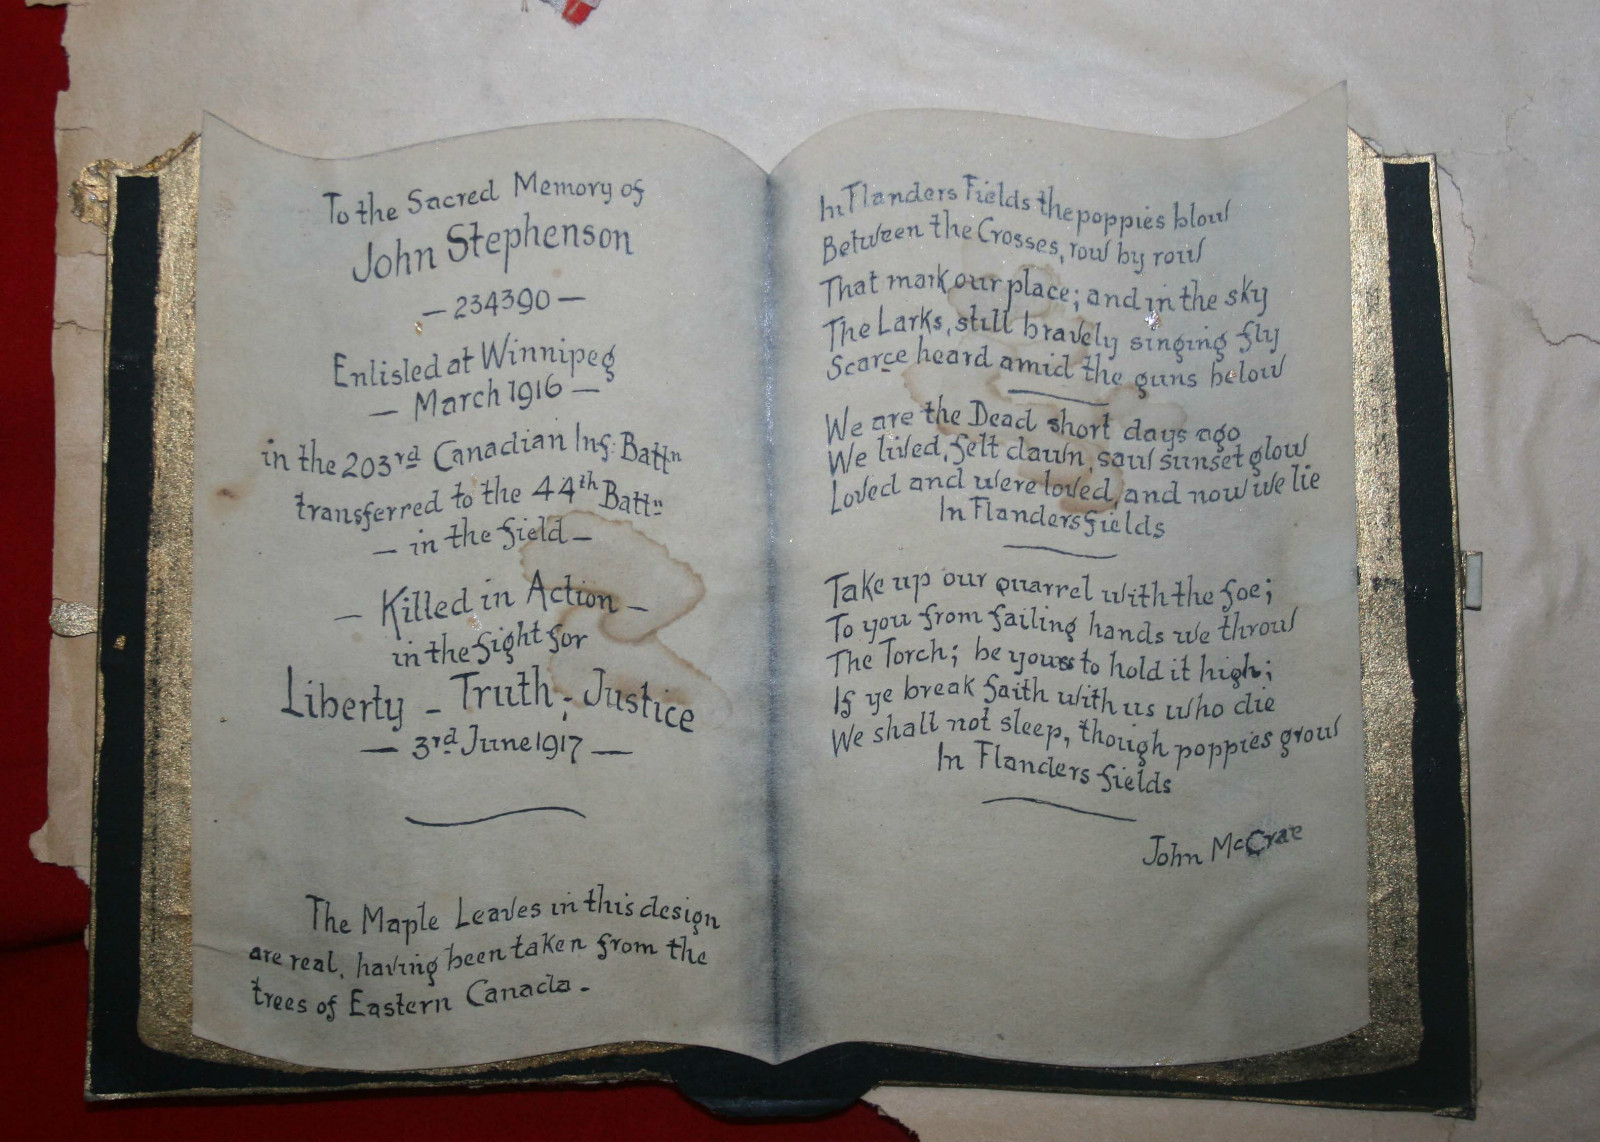 To the Sacred Memory of
John Stephenson
— 234390 —
Enlisled at Winnipeg
— March 1916 —
in the 203rd Canadian Inf: Battn
transferred to the 44th Battn
— in the field —
— Killed in Action —
in the fight for
Liberty - Truth - Justice
— 3rd June 1917 —
The Maple Leaves in this design
are real, having been taken from the
trees of Eastern Canada -
In Flanders Fields the poppies blow
Between the Crosses, row by row
That mark our place; and in the sky
The Larks, still bravely singing fly
Scarce heard amid the guns below
We are the Dead short days ago
We lived, felt dawn, saw sunset glow
Loved and were loved, and now we lie
In Flanders fields
Take up our quarrel with the foe;
To you from failing hands we throw
The Torch; be yours to hold it high;
If ye break faith with us who die
We shall not sleep, though poppies grow
In Flanders fields
John McCrae